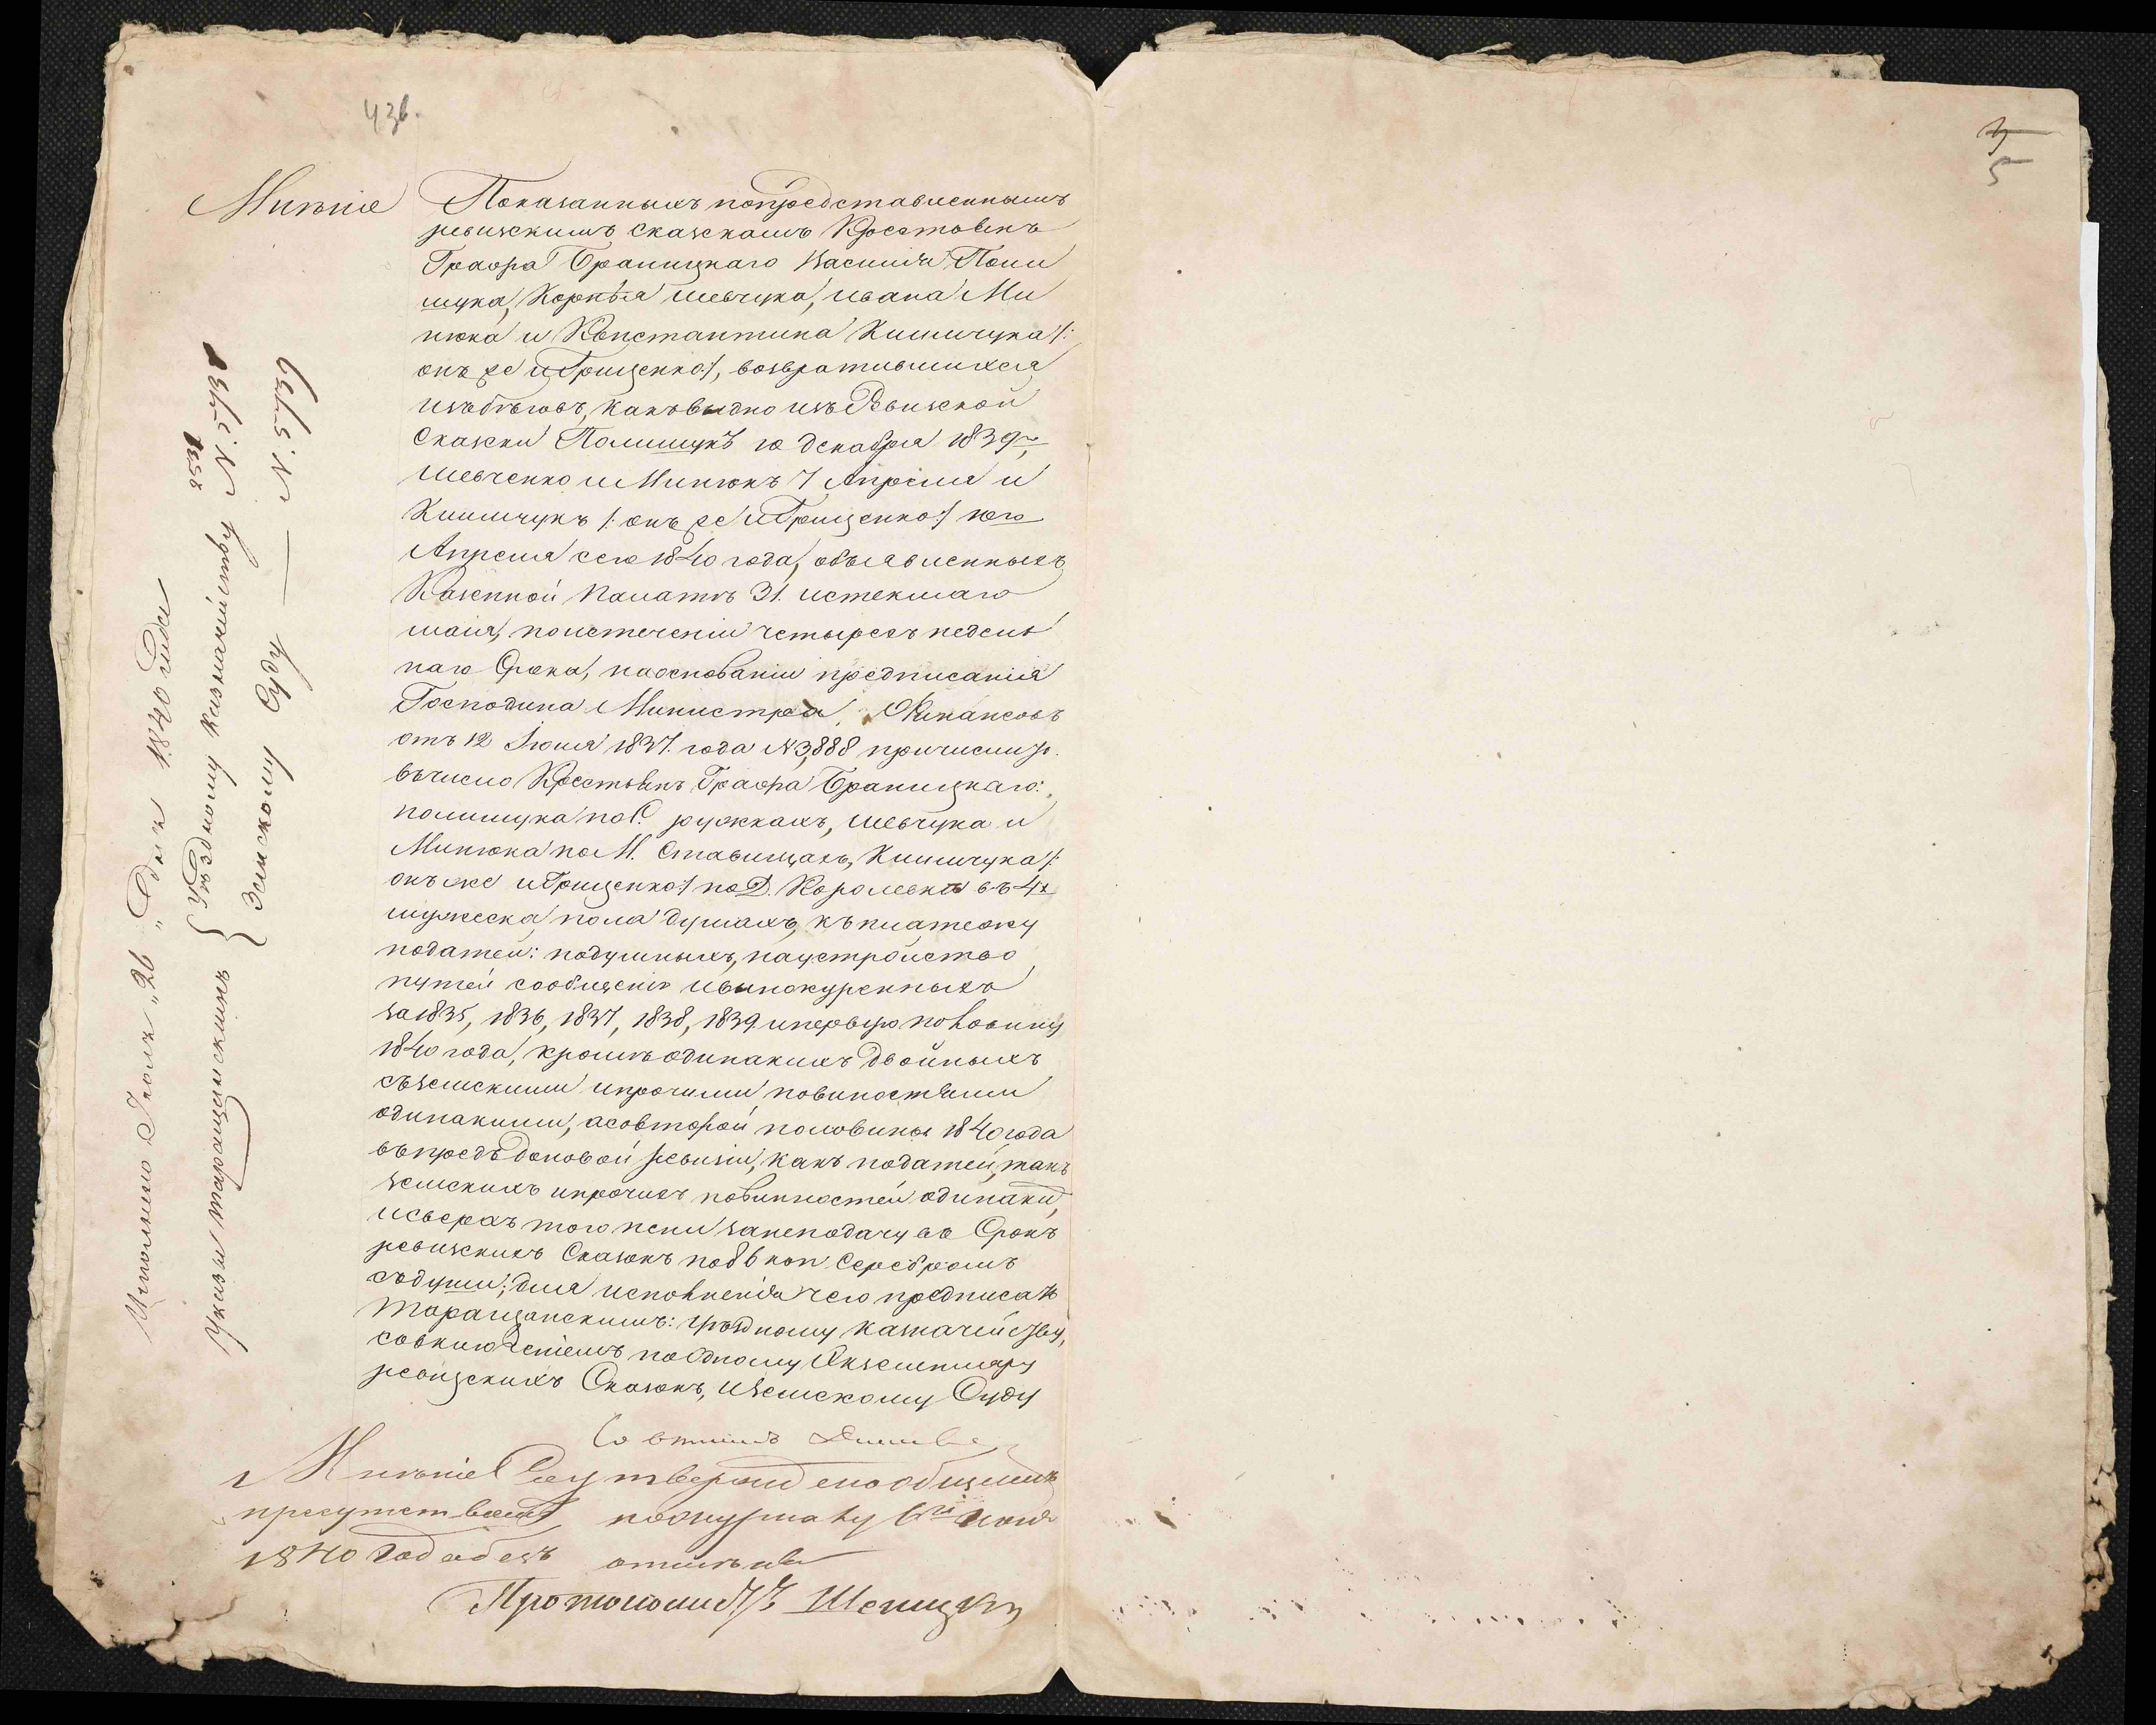 43б.
5
Мнѣніе
Показанныхъ попредставленнымъ
ревизскимъ сказкамъ Крестьянъ
Графа Браницкаго Василія Поли
щука, Корнѣя Шевчука, Ивана Ми
нюка и Константина Климчука /:
онъ же и Грищенко:/, возвратившихся
изъ бѣговъ, какъ видно изъ Ревизской
Сказки Полищукъ 10 декабря 1839го,
Шевченко и Минюкъ 7 Апрѣля и
Климчукъ /: онъ же и Грищенко:/ 10го
Апреля сего 1840 года, объявленныхъ
Казенной Палатѣ 31. истекшаго
маія, поистеченіи четырехъ недель
наго Срока, наоснованіи предписанія
Господина Министра Финансовъ
отъ 12 Іюля 1837. года №3,888 причислить
вчисло Крестьянъ Графа Браницкаго:
полищука по С. ружкахъ, Шевчука и
Минюка по М. Ставищахъ, Климчука /:
онъ же и Грищенко:/ по Д. Королевкѣ въ 4х
мужеска пола душахъ, къ платежу
податей: подушныхъ, наустройство
путей сообщенія и винокуренныхъ
за 1835, 1836, 1837, 1838, 1839 и первую половину
1840 года, кромѣ одинакихъ двойныхъ
съземскими ипрочими повиностями
одинакими, а совторой половины 1840 года
впредь доновой ревизіи, какъ податей, такъ
земскихъ ипрочихъ повинностей одинаки,
и сверхъ того пени занеподачу въ Срокъ
ревизскихъ Сказокъ по 86 коп Серебромъ
съдуши; для исполненія чего предписать
Таращанскимъ: уѣздному казначейству,
совключеніемъ поодному Экземпляру
ревизскихъ Сказокъ, и Земскому Суду
Совтникъ
Мнѣніе Сіе утверждено общимъ
присутствіемъ пожурналу 6го Іюня
1840 года безъ отмѣны
Протоколистъ
Исполнено Іюня „26„ Дня 1840 Года
Указы Таращанскимъ { Уѣздному Казначейству N. 5473
Земскому Суду — N.